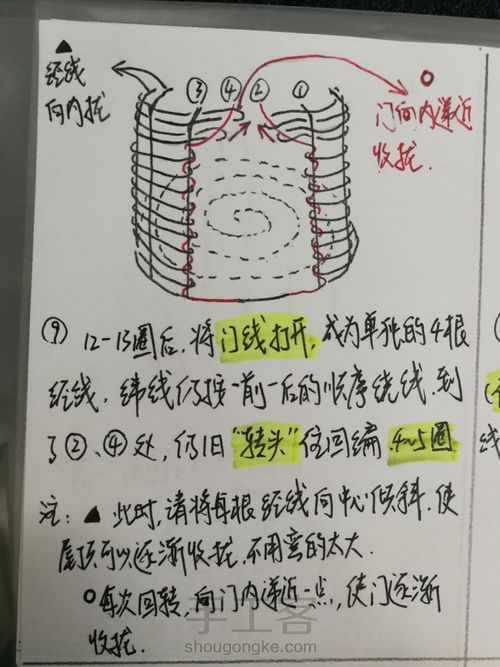 ▲
经线
向内拢
③ ④ ② ①
门向内递近
收拢.
⑨ 12-13圈后,将门线打开,成为单独的4根
经线,纬线仍按一前一后的顺序绕线,到
了②、④处,仍旧"转头"往回编,4~5圈
注:▲此时,请将每根经线向中心倾斜,使
屋顶可以逐渐收拢,不用弯的太大.
○每次回转,向门内递近一点,使门逐渐
收拢.
手工客
shougongke.com
线